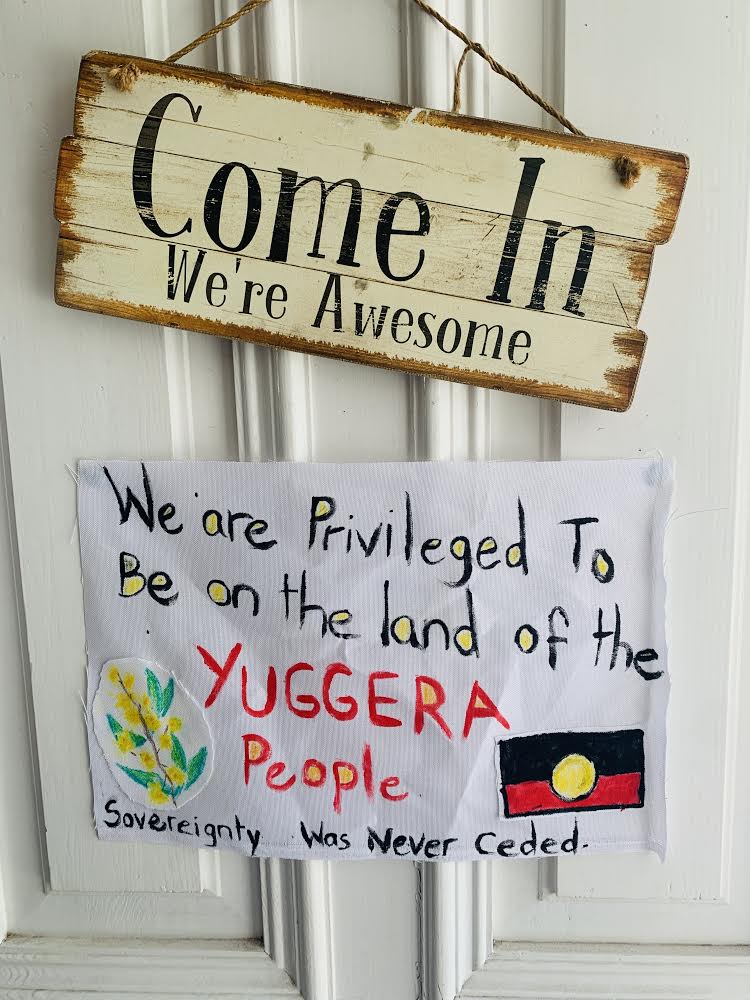 Come In
We're Awesome
We are Privileged To
Be on the land of the
YUGGERA
People
Sovereignty Was Never Ceded.